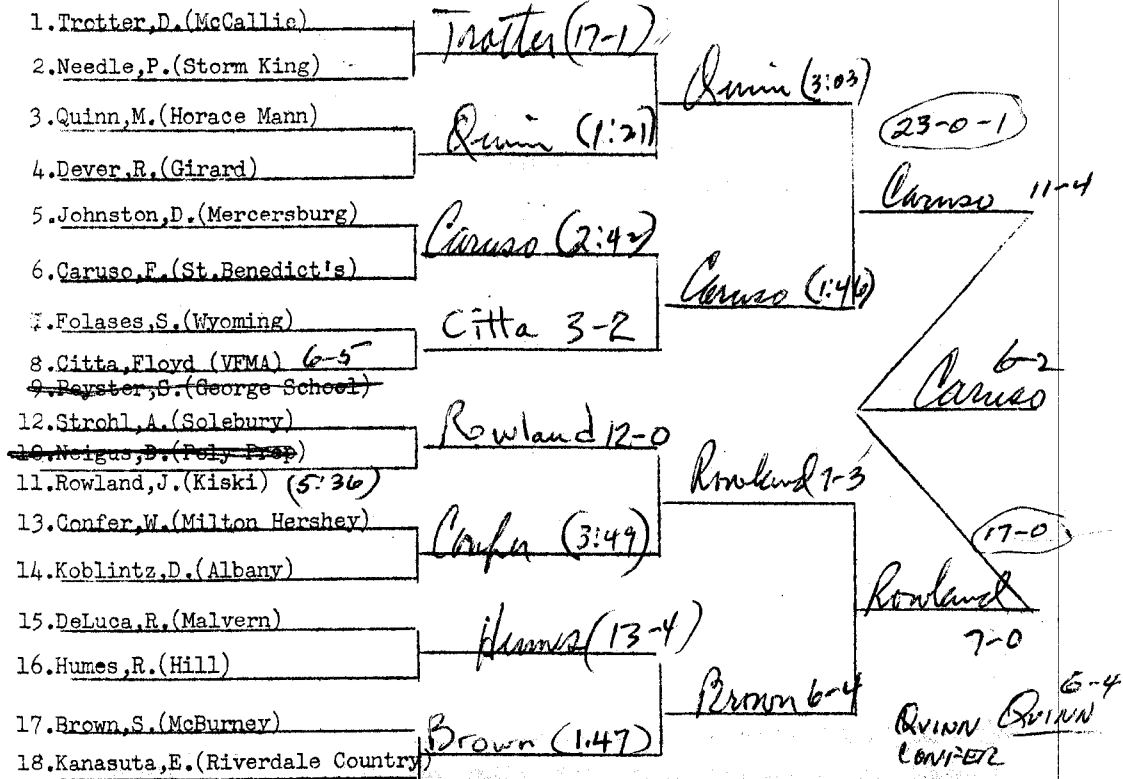 1.Trotter,D.(McCallie)
2.Needle,P.(Storm King)
3.Quinn,M.(Horace Mann)
4.Dever,R.(Girard)
5.Johnston,D.(Mercersburg)
6.Caruso,F.(St.Benedict's)
7.Folases,S.(Wyoming)
8.Citta,Floyd (VFMA) 6-5
9.Peyster,S.(George School)
12.Strohl,A.(Solebury)
10.Neigus,B.(Poly Prep)
11.Rowland,J.(Kiski) (5:36)
13.Confer,W.(Milton Hershey)
14.Koblintz,D.(Albany)
15.DeLuca,R.(Malvern)
16.Humes,R.(Hill)
17.Brown,S.(McBurney)
18.Kanasuta,E.(Riverdale Country)
Trotter (17-1)
Quinn (1:21)
Caruso (2:42)
Citta 3-2
Rowland 12-0
Confer (3:49)
Humes (13-4)
Brown (1:47)
Quinn (3:03)
Caruso (1:46)
Rowland 7-3
Brown 6-4
23-0-1
Caruso 11-4
6-2
Caruso
17-0
Rowland
7-0
6-4
QUINN QUINN
CONFER